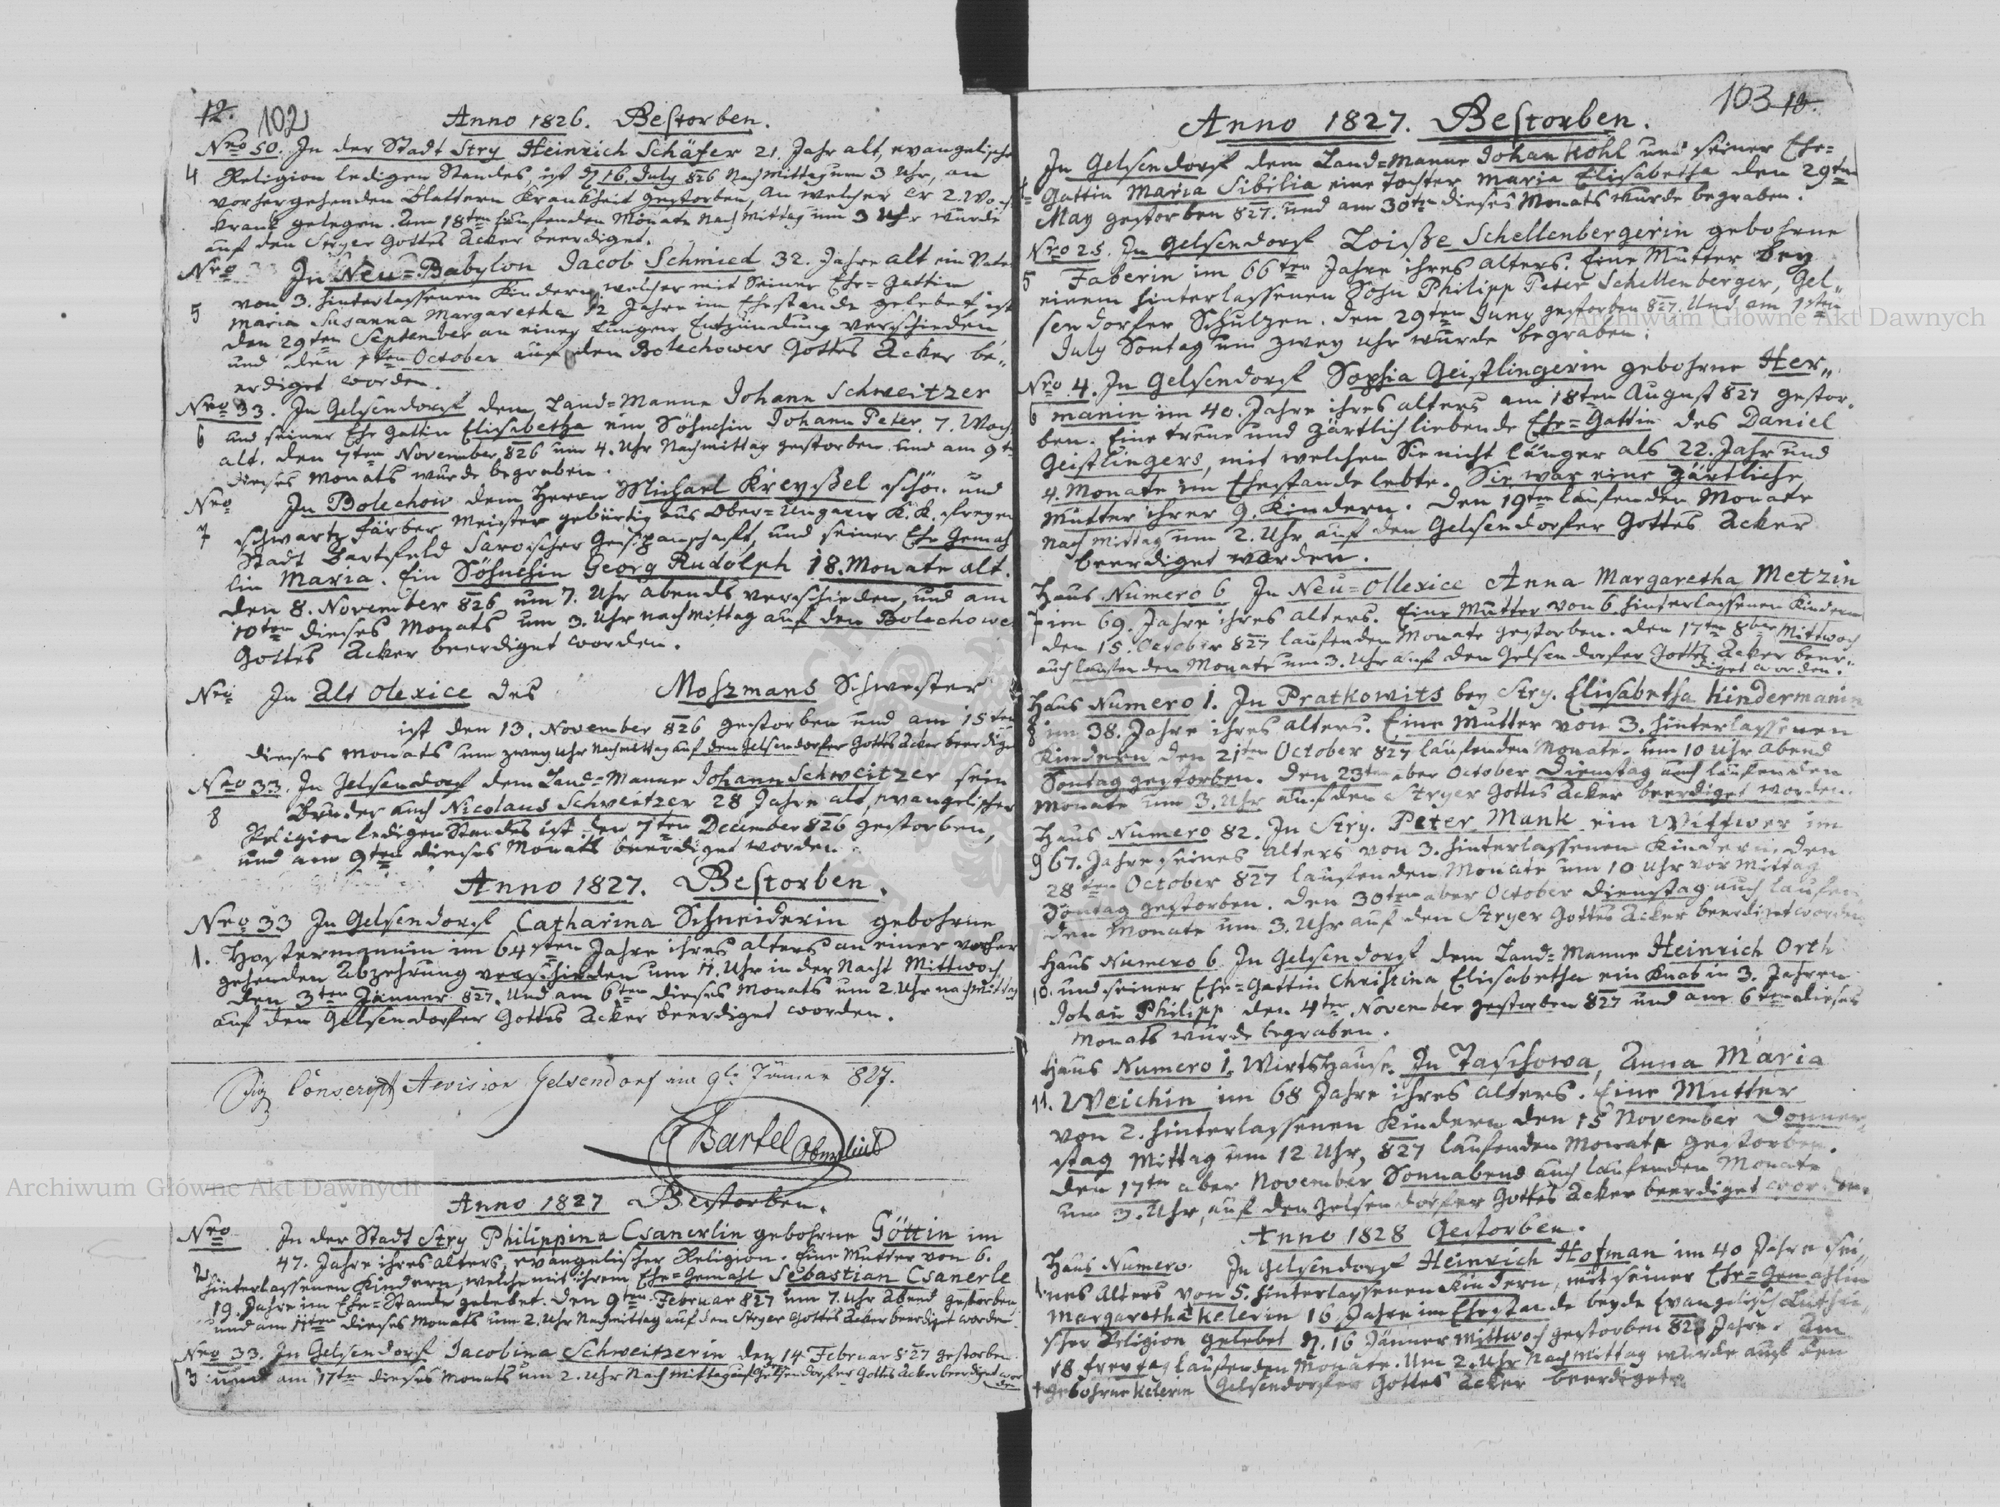 12. 102
Anno 1826. Bestorben.
Nro 50. In der Stadt Stry Heinrich Schäfer 21. Jahr alt, evangelische
4 Religion ledigen Standes, ist d 16. July 826 Nachmittag um 3 Uhr, an
vorhergehenden Blattern Krankheit gestorben, an welcher er 2. Wo
krank gelegen. Am 18ten laufenden Monats nach Mittag um 3 Uhr wurde
auf den Stryer Gottes Acker beerdiget.
Nro 33 In Neu=Babylon Jacob Schmied 32. Jahre alt ein Vater
von 3. hinterlassenen Kindern welcher mit Seiner Ehe=Gattin
5 Maria Susanna Margaretha 12 Jahre im Ehestande gelebet, ist
den 29ten September an einer Lungen Entzündung verschieden
und den 1ten October auf den Bolechower Gottes Acker be„
erdiget worden.
Nro 33. In Gelsendorf dem Land=Manne Johann Schweitzer
6 und seiner Ehe Gattin Elisabetha ein Söhnchin Johann Peter, 7. Woch
alt. den 7ten November 826 um 4. Uhr Nachmittag gestorben und am 9t
dieses Monats wurde begraben.
Nro In Bolechow dem Herrn Michael Kreyßel schön und
7 schwartz Färber Meister gebürtig aus Ober=Ungarn K. K. freyen
Stadt Bartfeld Saroscher Gespanschaft, und seiner Ehe Gemah
lin Maria. Ein Söhnchin Georg Rudolph 18. Monate alt.
den 8. November 826 um 7. Uhr abends verschieden, und am
10ten dieses Monats um 3. Uhr nachmittag auf den Bolechowe
Gottes Acker beerdiget worden.
Nro In Alt Olexice des Moszmans Schwester
ist den 13. November 826 gestorben und am 15ten
dieses Monats um zwey Uhr Nachmittag auf den Gelsendorfer Gottes Acker beerdige
Nro 33. In Gelsendorf dem Land=Manne Johann Schweitzer sein
8 Bruder auch Nicolaus Schweitzer 28 Jahre alt, evangelischer
Religion ledigen Standes ist den 7ten December 826 gestorben,
und am 9ten dieses Monats beerdiget worden.
Anno 1827. Bestorben.
Nro 33 In Gelsendorf Catharina Schneiderin gebohrne
1. im 64sten Jahre ihres alters an einer vorher
gehenden Abzehrung verschieden um 11. Uhr in der Nacht Mittwoch
den 3ten Jänner 827. Und am 6ten dieses Monats um 2. Uhr nachmittag
auf den Gelsendorfer Gottes Acker beerdiget worden.
Conscript Revision Gelsendorf am 9t Jänner 827.
Bartel
Anno 1827 Bestorben.
Nro In der Stadt Stry Philippina Csanerlin gebohrne Göttin im
47. Jahre ihres alters, evangelischer Religion. Eine Mutter von 6.
2 hinterlassenen Kindern, welche mit ihrem Ehe=Gemahl Sebastian Csanerle
19. Jahre im Ehe=Stande gelebet. Den 9ten Februar 827 um 7. Uhr Abend gestorben
und am 11ten dieses Monats um 2. Uhr Nachmittag auf den Stryer Gottes Acker beerdiget worden
Nro 33. In Gelsendorf Jacobina Schweitzerin den 14 Februar 827 gestorben
3 und am 17ten dieses Monats um 2. Uhr Nachmittag auf Gelsendorfer Gottes Acker beerdiget wor
den
103 10.
Anno 1827. Bestorben.
In Gelsendorf dem Land=Manne Johan Kohl und seiner Ehe=
Gattin Maria Sibilia eine Tochter Maria Elisabetha den 29ten
May gestorben 827. und am 30ten dieses Monats wurde begraben.
Nro 25. In Gelsendorf Loisße Schellenbergerin gebohrne
5 Faberin im 66ten Jahre ihres alters. Eine Mutter bey
einem hinterlassenen Sohn Philipp Peter Schellenberger, Gel„
sendorfer, Schulzen. den 29ten Juny gestorben 827. Und am 1sten
July Sontag um zwey Uhr wurde begraben.
Nro 4. In Gelsendorf Sophia Geistlingerin gebohrne Her„
6 manin im 40. Jahre ihres alters am 18ten August 827 gestor„
ben. Eine treue und zärtlich liebende Ehe=Gattin des Daniel
Geistlingers, mit welchen Sie nicht länger als 22. Jahr und
4. Monate im Ehestande lebte. Sie war eine Zärtliche
Mutter ihrer 9. Kindern. Den 19ten laufenden Monats
nach Mittag um 2. Uhr auf den Gelsendorfer Gottes Acker
beerdiget worden.
Haus Numero 6 In Neu=Ollexice Anna Margaretha Metzin
7 im 69. Jahre ihres alters. Eine Mutter von 6. hinterlassenen Kindern
den 15. October 827 laufenden Monats gestorben. den 17ten 8ber Mittwoch
auch laufenden Monats um 3. Uhr auf den Gelsendorfer Gottes Acker beer„
diget worden.
Haus Numero 1. In Pratkowits bey Stry. Elisabetha Kindermanin
8 im 38. Jahre ihres alters. Eine Mutter von 3. hinterlassenen
Kindern den 21ten October 827 laufenden Monats um 10 Uhr abend
Sontag gestorben. Den 23ten aber October Dienstag auch laufenden
Monats um 3. Uhr auf den Stryer Gottes Acker beerdiget worden.
Haus Numero 82. In Stry. Peter Mank ein Wittwer im
9 67. Jahre seines alters von 3. hinterlassenen Kindern. den
28ten October 827 laufenden Monats um 10 Uhr vor Mittag
Sontag gestorben. Den 30ten aber October Dienstag auch laufen
den Monats um 3. Uhr auf den Stryer Gottes Acker beerdiget worden
Haus Numero 6. In Gelsendorf dem Land=Manne Heinrich Orth
10. und seiner Ehe=Gattin Christina Elisabetha ein Knab in 3. Jahren
Johan Philipp den 4ten November gestorben 827 und am 6ten dieses
Monats wurde begraben.
Haus Numero 1. Wirtshause. In Taschowa, Anna Maria
11. Weichin im 68 Jahre ihres alters. Eine Mutter
von 2. hinterlassenen Kindern den 15 November Donner„
stag Mittag um 12 Uhr, 827 laufenden Monats gestorben.
den 17ten aber November Sonnabend auch laufenden Monats
um 3. Uhr, auf den Gelsendorfer Gottes Acker beerdiget worden.
Anno 1828 Gestorben.
Haus Numero. In Gelsendorf Heinrich Hofman im 40 Jahre sei„
1 nes Alters von 5. hinterlassenen Kindern, mit seiner Ehe=Gemahlin
Margaretha Kelerin 16 Jahre im Ehestande beyde Evangelisch Luthri„
scher Religion gelebet d. 16 Jänner Mittwoch gestorben 828 Jahre. Am
18 Freytag laufenden Monats. Um 2. Uhr Nachmittag wurde auf den
gebohrne Kelerin Gelsendorfer Gottes Acker beerdiget.
Archiwum Główne Akt Dawnych
Archiwum Główne Akt Dawnych